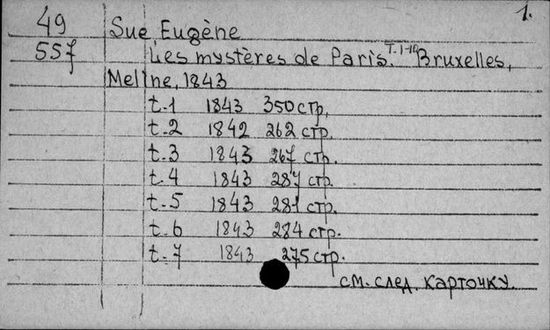 1.
49 Sue, Eugène
557 Les mystères de Paris. T. 1-10 Bruxelles,
Meline, 1843
t. 1 1843 350 стр.
t. 2 1842 262 стр.
t. 3 1843 267 стр.
t. 4 1843 287 стр.
t. 5 1843 281 стр.
t. 6 1843 284 стр.
t. 7 1843 275 стр.
см. след. карточку.